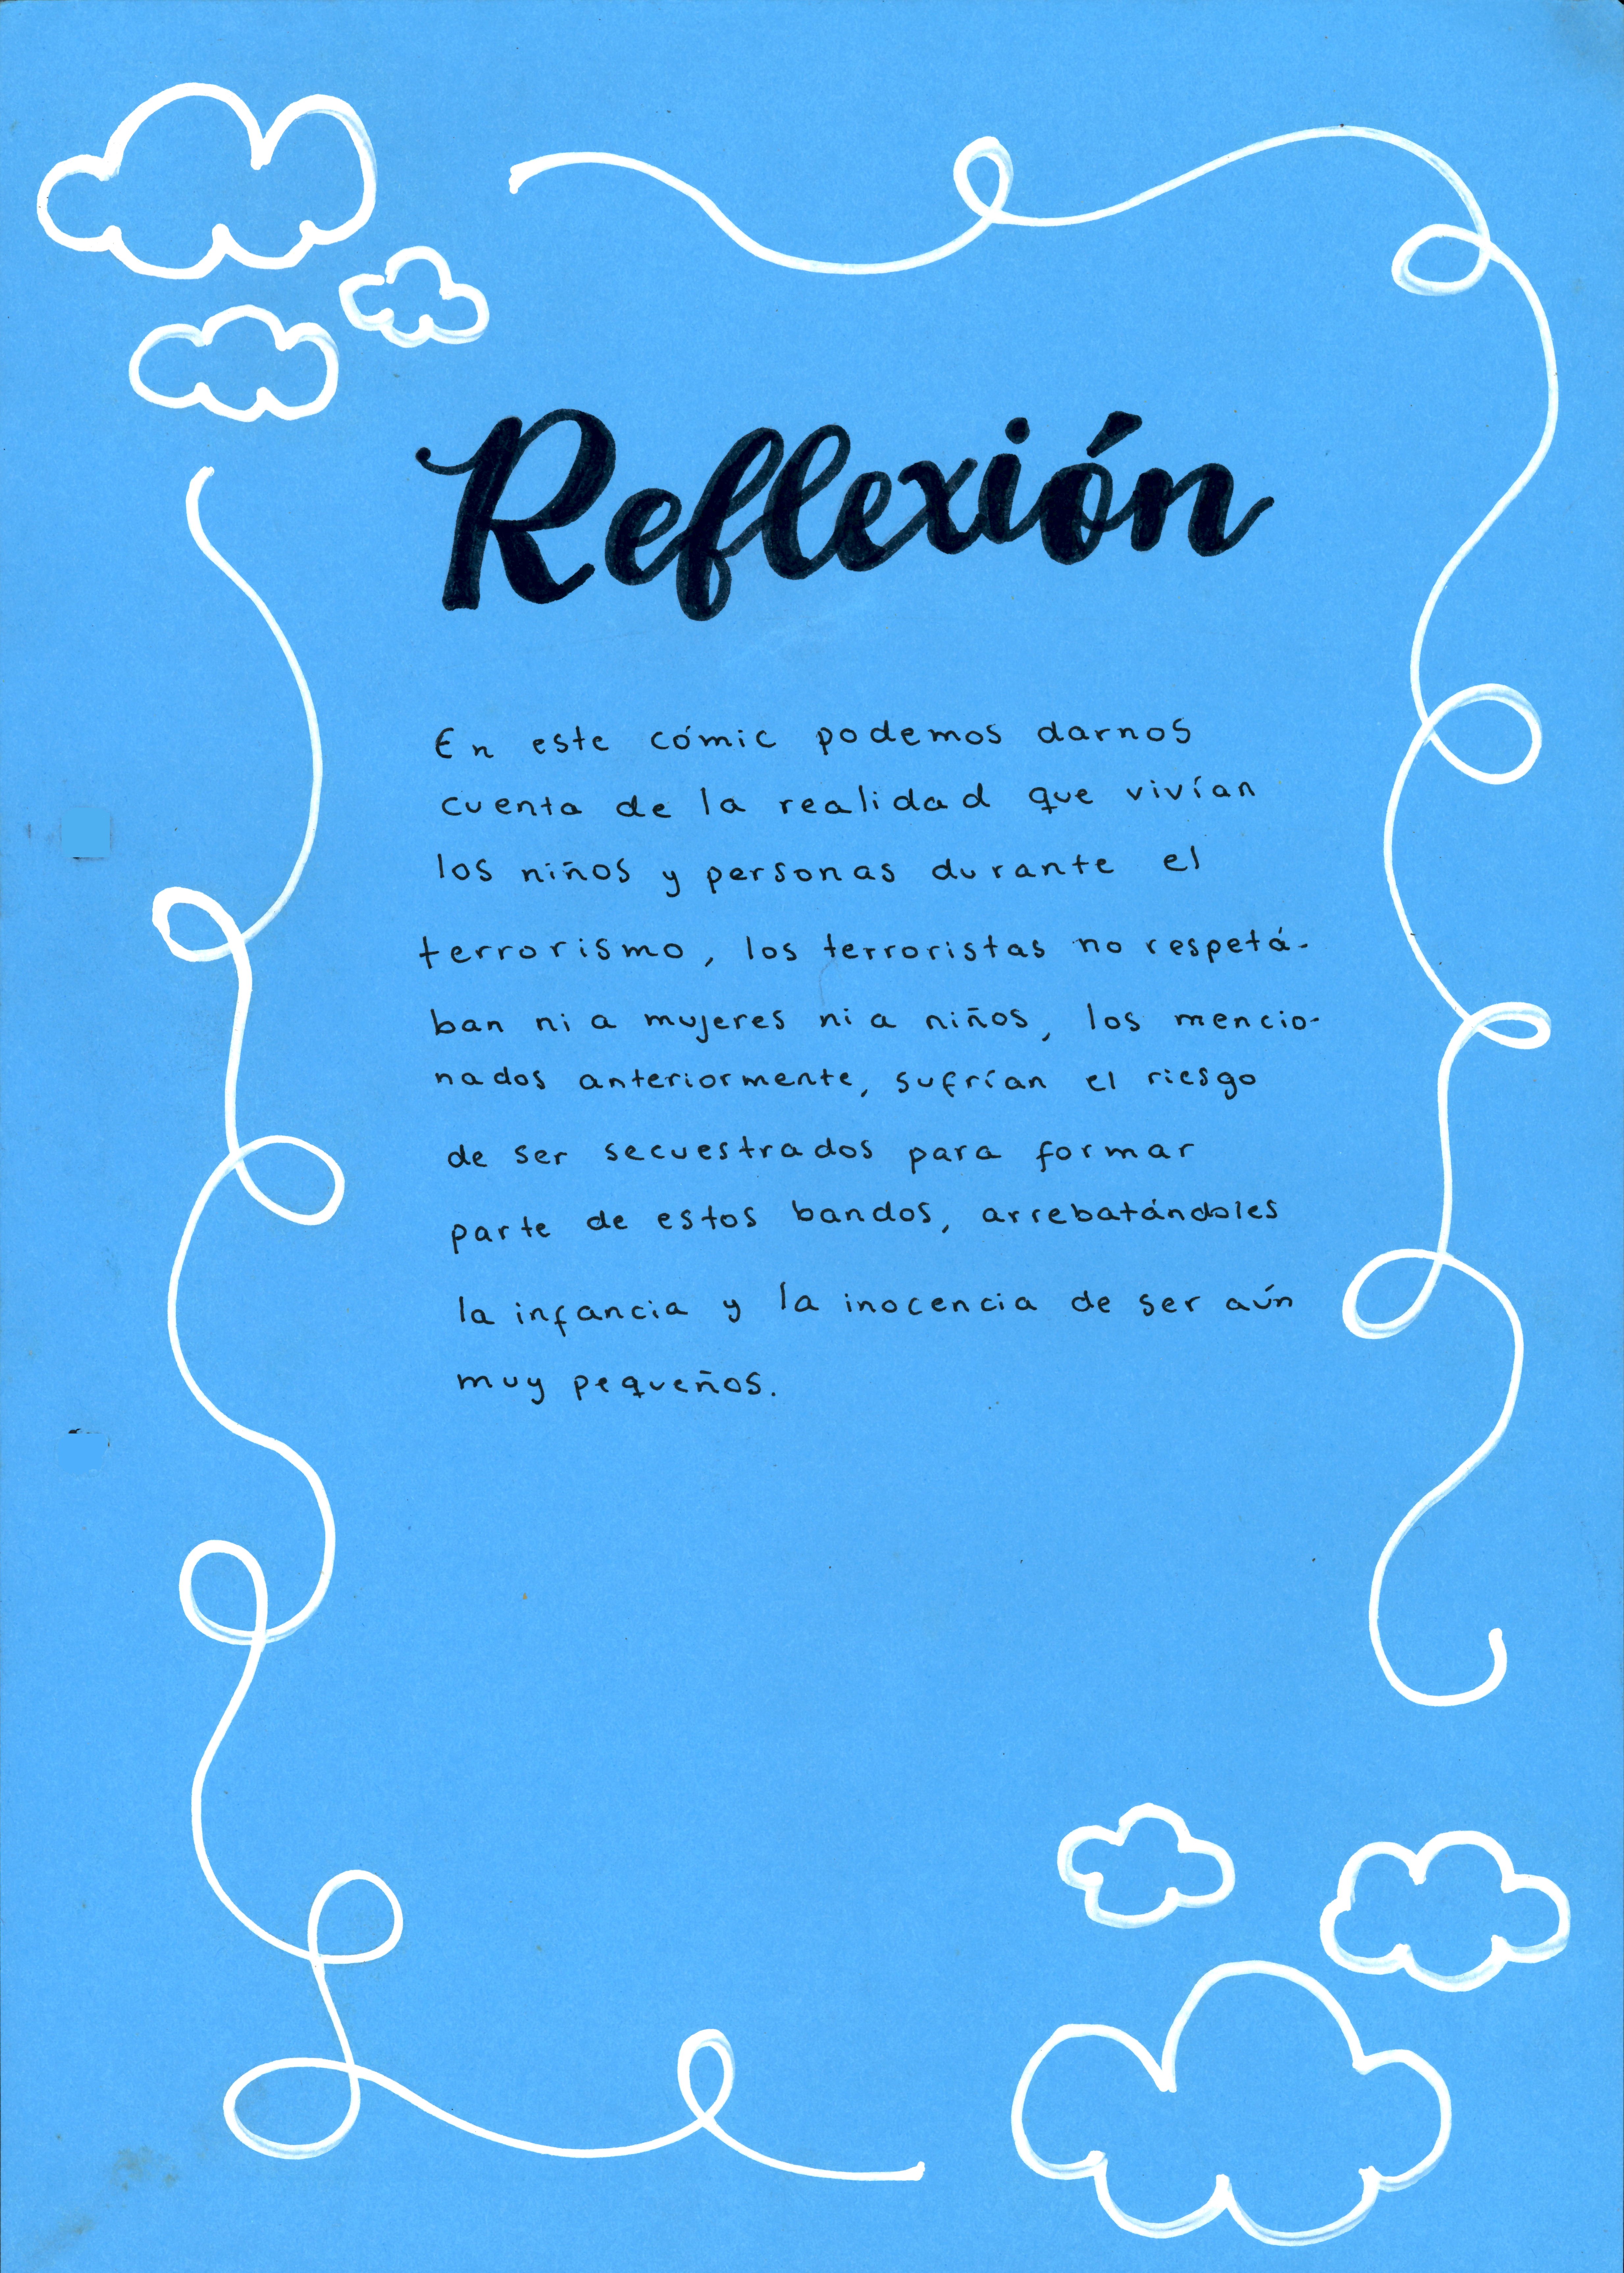 Reflexión
En este cómic podemos darnos
cuenta de la realidad que vivían
los niños y personas durante el
terrorismo, los terroristas no respetá-
ban ni a mujeres ni a niños, los mencio-
nados anteriormente, sufrían el riesgo
de ser secuestrados para formar
parte de estos bandos, arrebatándoles
la infancia y la inocencia de ser aún
muy pequeños.